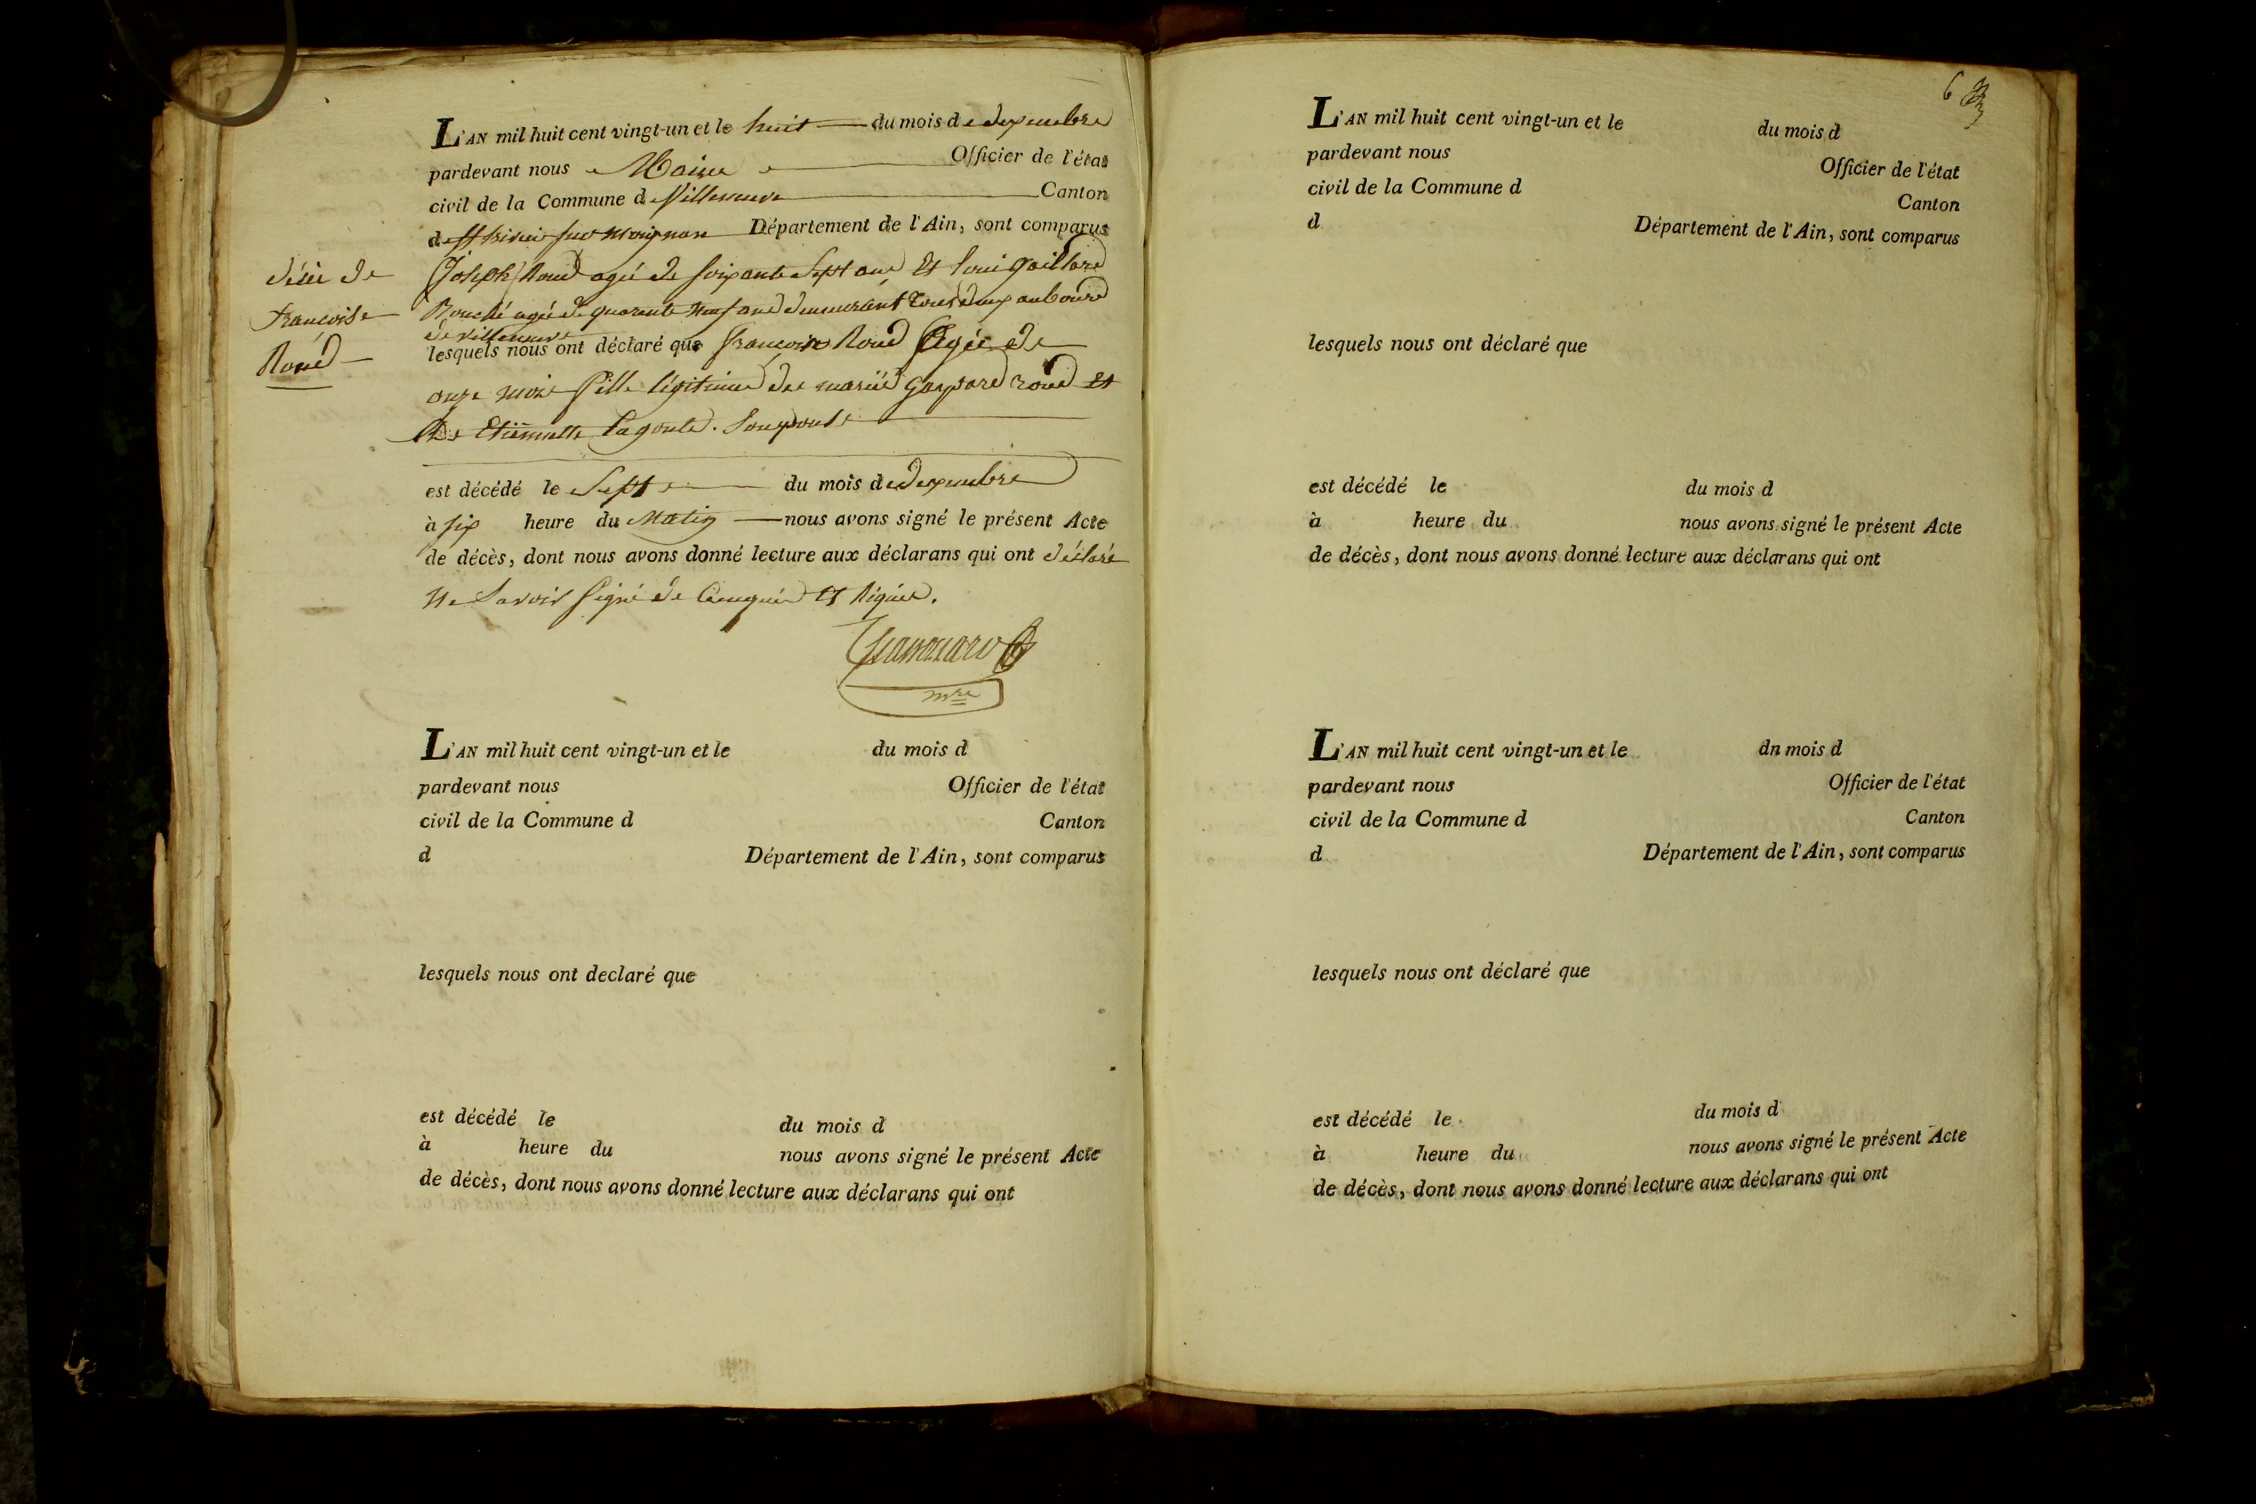 L'AN mil huit cent vingt-un et le huit du mois de decembre
pardevant nous Maire Officier de l'état
civil de la Commune de Villeneuve Canton
de St trivier sur moignan Département de l'Ain, sont comparus
décès de
francoise
Roud
Joseph Roud agé de soixante sept ans et Loui gaillard
Bouché agé de quarante neuf ans demeurant tous deux au bourd
de villeneuve
lesquels nous ont déclaré que francoise Roud agée de
onze mois fille légitime des mariés gaspard roud et
de Etiennette Lagoute.
est décédé le sept du mois de decembre
à six heure du Matin nous avons signé le présent Acte
de décès, dont nous avons donné lecture aux déclarans qui ont déclaré
Ne savoir signé de Cenquis et Réquis.
mre
L'AN mil huit cent vingt-un et le du mois d
pardevant nous Officier de l'état
civil de la Commune d Canton
d Département de l'Ain, sont comparus
lesquels nous ont declaré que
est décédé le du mois d
à heure du nous avons signé le présent Acte
de décès, dont nous avons donné lecture aux déclarans qui ont
6
L'AN mil huit cent vingt-un et le du mois d
pardevant nous Officier de l'état
civil de la Commune d Canton
d Département de l'Ain, sont comparus
lesquels nous ont déclaré que
est décédé le du mois d
à heure du nous avons signé le présent Acte
de décès, dont nous avons donné lecture aux déclarans qui ont
L'AN mil huit cent vingt-un et le dn mois d
pardevant nous Officier de l'état
civil de la Commune d Canton
d Département de l'Ain, sont comparus
lesquels nous ont déclaré que
est décédé le du mois d
à heure du nous avons signé le présent Acte
de décès, dont nous avons donné lecture aux déclarans qui ont